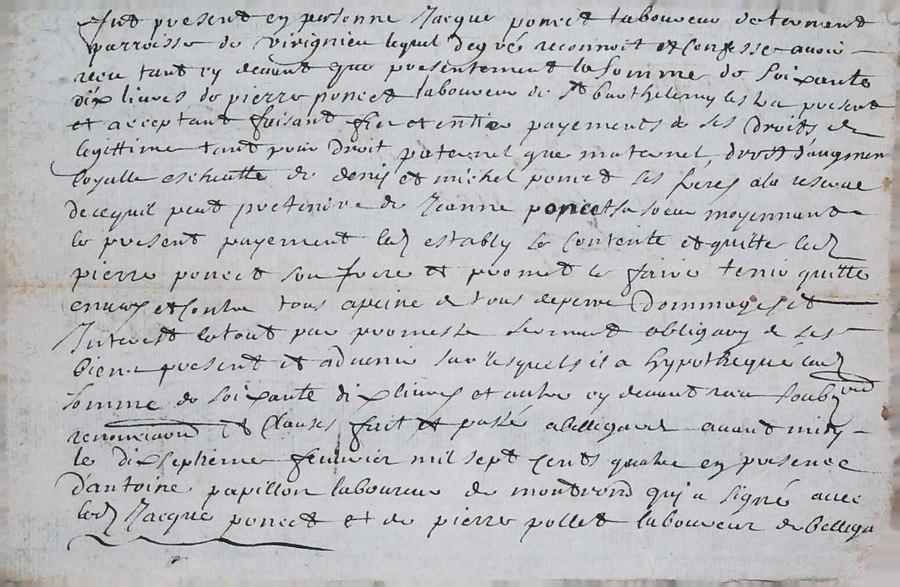 fut present en personne Jacque poncet laboureur de
parroisse de virignieu lequel de gré reconnoit et confesse avoir
receu tant cy devant que presentement la somme de soixante
dix livres de pierre poncet laboureur de St barthelemy present
et acceptant faisant payements de ses droits de
legittime tant pour droit paternel que maternel, droit d'augmen
loyalle escheutte de denis et michel poncet ses freres a la reserve
de ce quil peut pretendre de Jeanne poncet sa soeur moyennant
le present payement led estably se contente et quitte led
pierre poncet son frere et promet le faire tenir quitte
envers et contre tous a peine de tous depens dommages et
Interest le tout par promesse serment obliga on de ses
biens present et advenir sur lesquels il a hypotheque lad
somme de soixante dix livres et autre cy devant receu soubz
renonciaon et clauses fait et passé a bellegarde avant midy
le dixseptieme feuvrier mil sept cents quatre en presence
d'antoine papillon laboureur de montrond qui a signé avec
led Jacque poncet et de pierre pollet laboureur de bellega